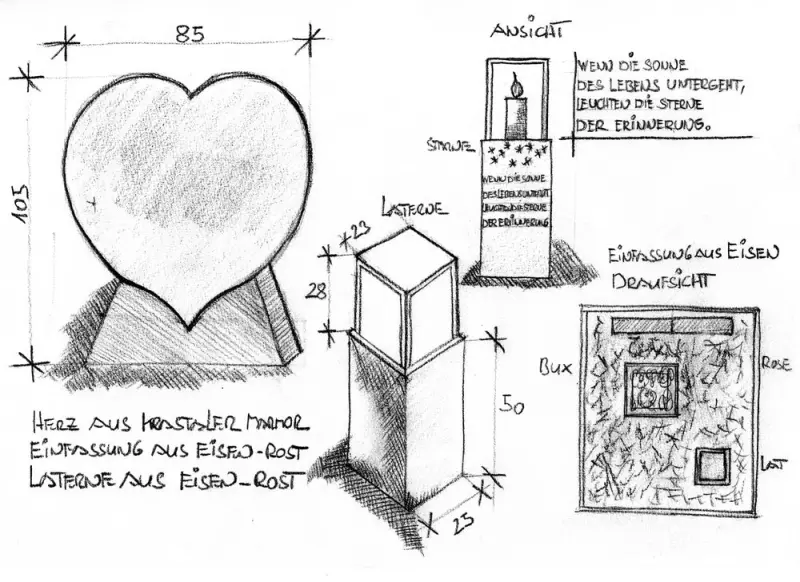 85
103
HERZ AUS KRASTALER MARMOR
EINFASSUNG AUS EISEN-ROST
LATERNE AUS EISEN-ROST
LATERNE
23
28
50
25
ANSICHT
WENN DIE SONNE
DES LEBENS UNTERGEHT,
LEUCHTEN DIE STERNE
DER ERINNERUNG.
STERNE
WENN DIE SONNE
DES LEBENS UNTERGEHT
LEUCHTEN DIE STERNE
DER ERINNERUNG
EINFASSUNG AUS EISEN
DRAUFSICHT
BUX
ROSE
LAT